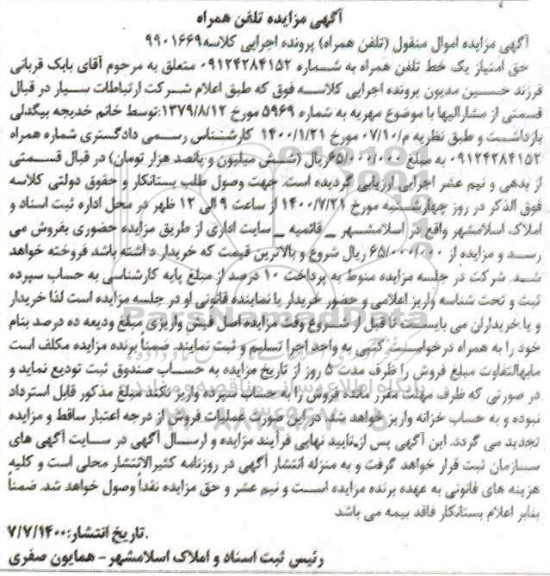 آگهی مزایده تلفن همراه
آگهی مزایده اموال منقول (تلفن همراه) پرونده اجرایی کلاسه ۹۹۰۱۶۶۹
حق امتیاز یک خط تلفن همراه به شماره ۰۹۱۲۴۲۸۴۱۵۲ متعلق به مرحوم آقای بابک قربانی
فرزند حسین مدیون پرونده اجرایی کلاسه فوق که طبق اعلام شرکت ارتباطات سیار در قبال
قسمتی از مشارالیها با موضوع مهریه به شماره ۵۹۶۹ مورخ ۱۳۷۹/۸/۱۲:توسط خانم خدیجه بیگدلی
بازداشت و طبق نظریه م/۰۷/۱۰ مورخ ۱۴۰۰/۱/۲۱ کارشناس رسمی دادگستری شماره همراه
۰۹۱۲۴۲۸۴۱۵۲ به مبلغ ۶۵/۰۰۰/۰۰۰ریال (شش میلیون و پانصد هزار تومان) در قبال قسمتی
از بدهی و نیم عشر اجرایی ارزیابی گردیده است. جهت وصول طلب بستانکار و حقوق دولتی کلاسه
فوق الذکر در روز چهارشنبه مورخ ۱۴۰۰/۷/۲۱ از ساعت ۹ الی ۱۲ ظهر در محل اداره ثبت اسناد و
املاک اسلامشهر واقع در اسلامشهر _ قائمیه _ سایت اداری از طریق مزایده حضوری بفروش می
رسد و مزایده از ۶۵/۰۰۰/۰۰۰ ریال شروع و بالاترین قیمت که خریدار داشته باشد فروخته خواهد
شد. شرکت در جلسه مزایده منوط به پرداخت ۱۰ درصد از مبلغ پایه کارشناسی به حساب سپرده
ثبت و تحت شناسه واریز اعلامی و حضور خریدار یا نماینده قانونی او در جلسه مزایده است لذا خریدار
و یا خریداران می بایست تا قبل از شروع وقت مزایده اصل فیش واریزی مبلغ ودیعه ده درصد بنام
خود را به همراه درخواست کتبی به واحد اجرا تسلیم و ثبت نمایند. ضمنا برنده مزایده مکلف است
مابه‌التفاوت مبلغ فروش را ظرف مدت ۵ روز از تاریخ مزایده به حساب صندوق ثبت تودیع نماید و
در صورتی که ظرف مهلت مقرر مانده فروش را به حساب سپرده واریز نکند مبلغ مذکور قابل استرداد
نبوده و به حساب خزانه واریز خواهد شد در این صورت عملیات فروش از درجه اعتبار ساقط و مزایده
تجدید می گردد. این آگهی پس از تایید نهایی فرآیند مزایده و ارسال آگهی در سایت آگهی های
سازمان ثبت قرار خواهد گرفت و به منزله انتشار آگهی در روزنامه کثیرالانتشار محلی است و کلیه
هزینه های قانونی به عهده برنده مزایده است و نیم عشر و حق مزایده نقدا وصول خواهد شد. ضمنا
بنابر اعلام بستانکار فاقد بیمه می باشد
.تاریخ انتشار:۷/۷/۱۴۰۰
رئیس ثبت اسناد و املاک اسلامشهر- همایون صفری
ParsNamadData